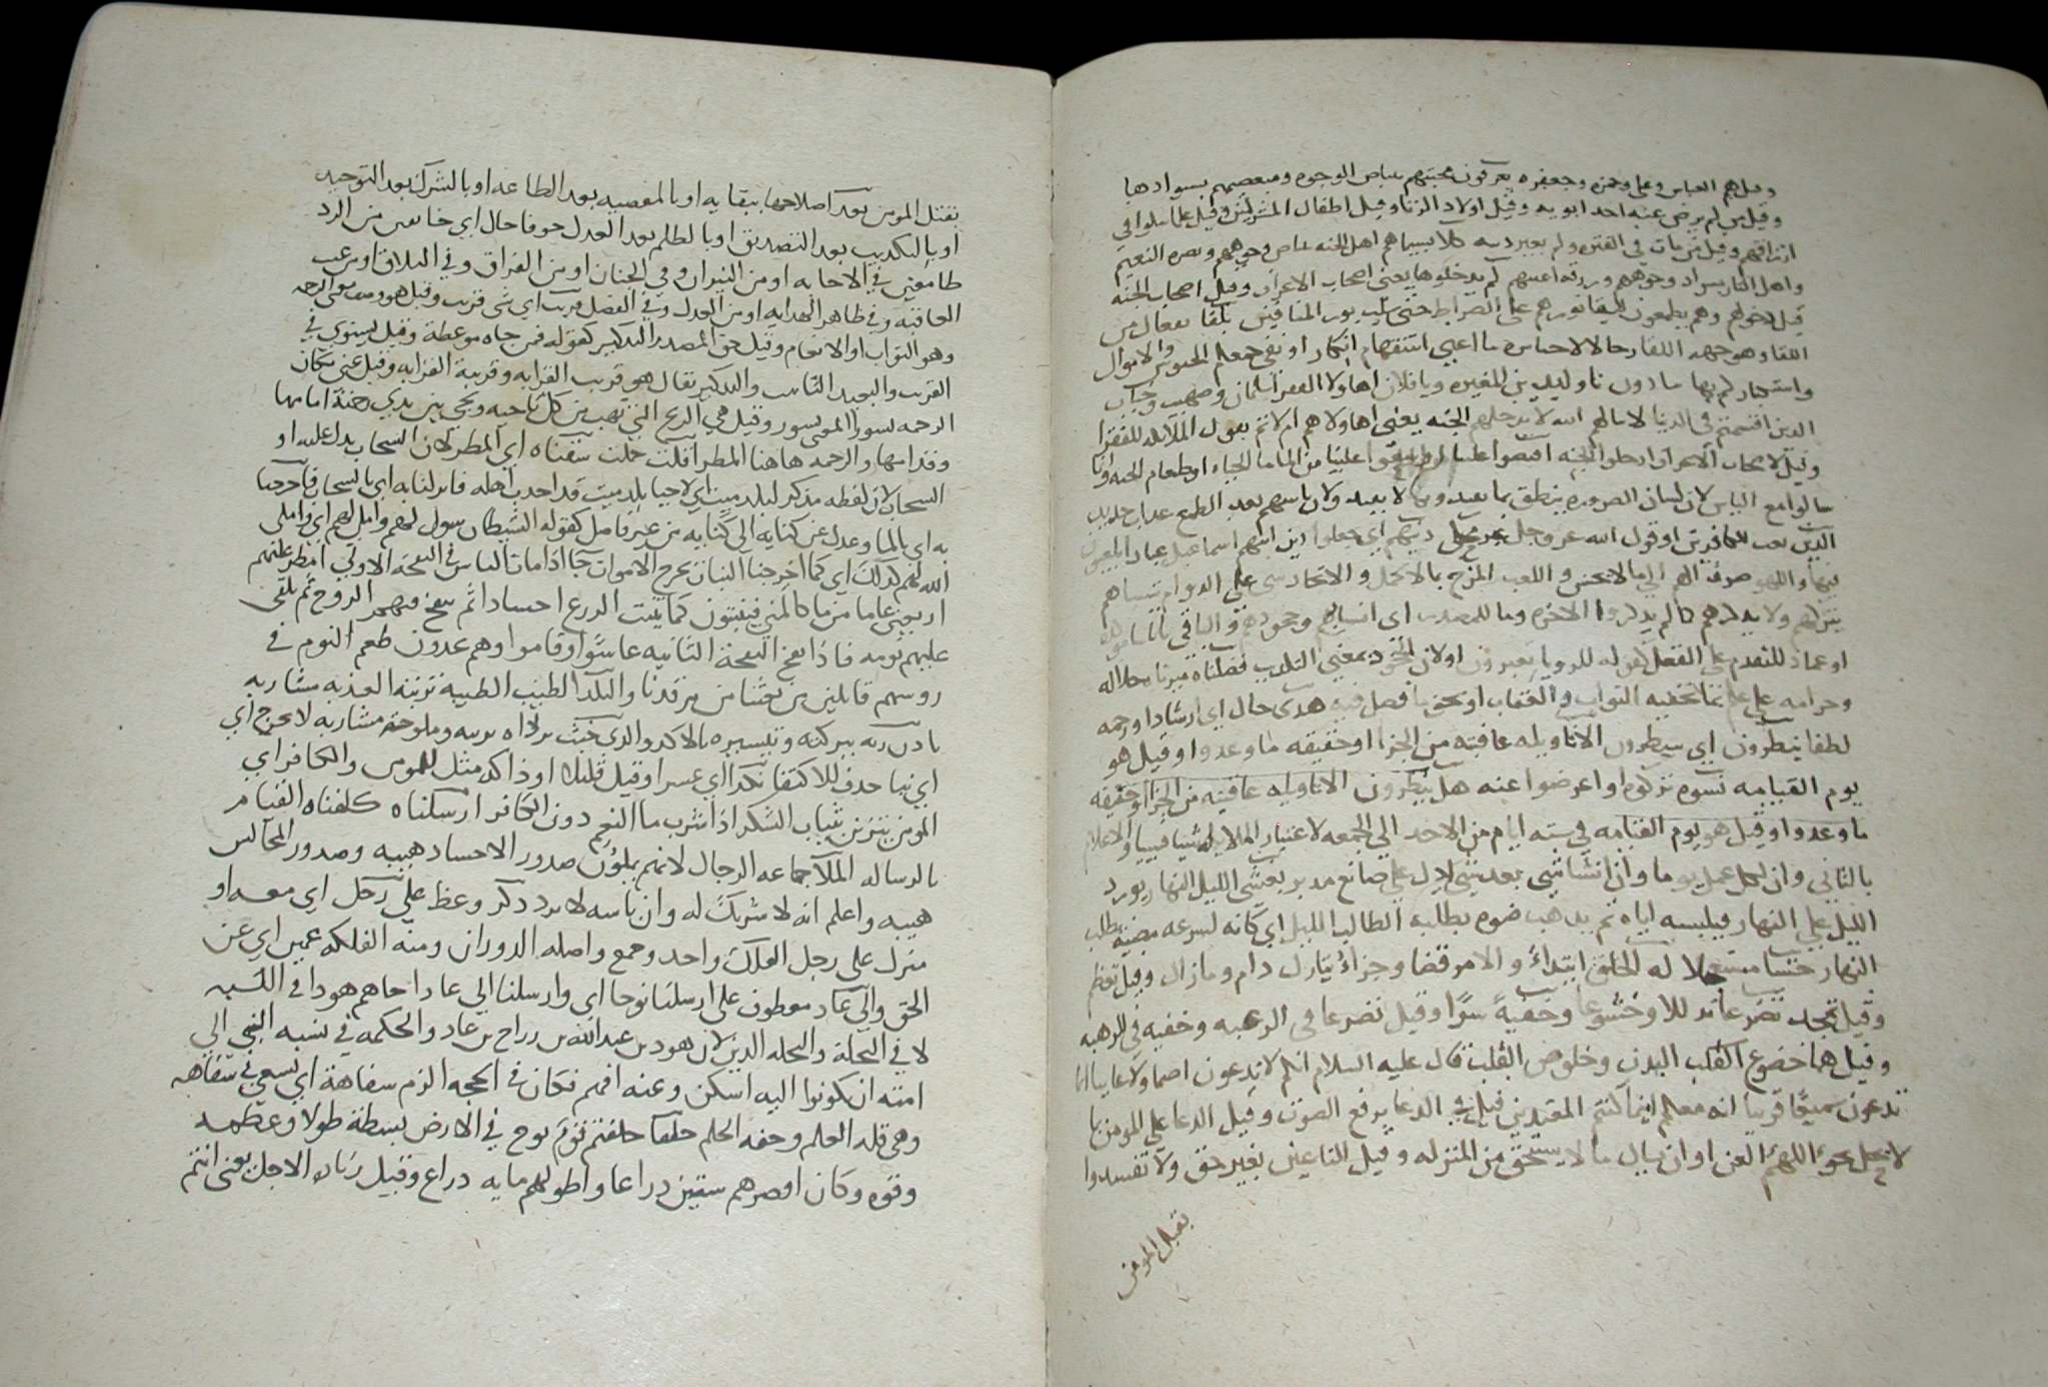 وقيل هم العباس وعلى وحمزه وجعفر ه يعرفون محبتهم ببياض الوجوه ومبغضيهم بسوادها
وقيل من لم يرض عنه احد ابويه وقيل اولاد الزنا وقيل اطفال المشركين وقيل علما
وقيل من مات في الفتره ولم يغير دينه كلا بسيماهم اهل الجنه بياض وجوههم ونضره النعيم
واهل النار بسواد وجوههم وزرقه اعينهم لم يدخلوها يعنى اصحاب الاعراف وقيل اصحاب الجنه
قبل دخولهم وهم يطمعون لبقا نورهم على الصراط حتى سلب نور المنافقين تلقا تفعال من
اللقا وهو جهه اللقا ما اغنى استفهام انكار او نفي جمعكم الجيوش والاموال
يا وليد بن المغيره ويا فلان اهاولا الفقرا سلمان وصهيب وخباب
الذين اقسمتم في الدنيا لا ينالهم الله لا يدخلهم الجنه يعنى اهاولا هم ام لا ثم يقول الملائكه للفقرا
وقيل لاصحاب الاعراف ادخلوا الجنه افيضوا علينا من الما ما الحياه او طعام الجنه وانما
سالوا مع الياس لان لسان الضروره ينطق بما يفيد وبما لا يفيد ولان ياسهم بعد الطمع عذاب جديد
الذين نعت للكافرين او قول الله عز وجل دينهم اي جعلوا دين ابيهم اسماعيل
فيها واللهو صرف الهم الى ما لا يحسن واللعب المزح بما لا يحمل على الدوام ننساهم
نتركهم ولا يذكرهم كما لم يذكروا الاخره وما للمصدر اى انسيانهم وجحودهم والباقي باياتنا
او عماد للتقدم على الفعل كقوله للرويا تعبرون اولان الجحود بمعنى التكذيب فصلناه ميزنا حلاله
وحرامه على علم بما تخفيه الثواب والعقاب او نحن بما فصل فيه هدى حال اي ارشادا ورحمه
لطفا ينظرون اي ينتظرون الا تاويله عاقبته من الجزا او حقيقه ما وعدوا وقيل هو
يوم القيامه نسوه تركوه او اعرضوا عنه هل ينظرون الا تاويله عاقبته من الجزا او حقيقه
ما وعدوا وقيل هو يوم القيامه في سته ايام من الاحد الى الجمعه لاعتبار الملائكه شيا فشيا والاعلام
بالتاني وان لكل عمل يوما وان انشا شي بعد شي ادل على صانع مدبر يغشى الليل النهار يورد
الليل على النهار فيلبسه اياه ثم يذهب ضوه يطلبه الطالب الليل اي كانه لسرعه مضيه يطلب
النهار حثيثا له الخلق ابتداء والامر قضا وجزاء تبارك دام وما زال وقيل تعظم
وقيل تمجد تضرعا تذللا وخشوعا وخفية سرًا وقيل تضرعا فى الرغبه وخفيه فى الرهبه
وقيل هما خضوع البدن وخلوص القلب قال عليه السلام انكم لا تدعون اصما ولا غايبا انما
تدعون سميعًا قريبا انه معكم اينما كنتم المعتدين قيل في الدعا برفع الصوت وقيل الدعا على المومن بما
لا يحل نحو اللهم العن او ان يسال ما لا يستحق من المنزله وقيل الباغين بغير حق ولا تفسدوا
بقتل المومن
بقتل المومن بعد اصلاحها ببقايه او بالمعصيه بعد الطاعه او بالشرك بعد التوحيد
او بالتكذيب بعد التصديق او بالظلم بعد العدل خوفا حال اي خايفين من الرد
طامعين في الاجابه او من النيران وفي الجنان او من الفراق وفي التلاق او من غيب
العاقبه وفي ظاهر الهدايه او من العدل وفي الفضل قريب اى شى قريب وقيل هو وصف معنى الرحمه
وهو الثواب او الانعام وقيل حق المصدر التذكير كقوله فمن جاه موعظة وقيل يستوي في
القرب والبعد التانيث والتذكير يقال هو قريب القرابه وقريبة القرابه وقيل عنى مكان
الرحمه نشورا وقيل هي الريح التي تهب من كل ناحيه ونجى بين يدي رحمته امامها
وقدامها والرحمه هاهنا المطر اقلت حملت سقناه اي المطر لان السحاب يدل عليه او
السحاب لان لفظه مذكر لبلد ميت اي لاحيا بلد ميت قد اجدب اهله فانزلنا به اي بالسحاب فاخرجنا
به اي بالما وعدل عن كنايه الى كنايه من غير فاصل كقوله الشيطان سول لهم واملى لهم اي واملى
الله لهم كذلك اي كما اخرجنا النبات نخرج الاموات جا اذا مات الناس في النفخه الاولي امطر عليهم
اربعين عاما من ما كالمني فينبتون كما ينبت الزرع احسادا ثم ينفخ فيهم الروح ثم يلقى
عليهم نومه فاذا نفخ النفخة الثانيه عاشوا وقاموا وهم يجدون طعم النوم في
روسهم قايلين من بعثنا من مرقدنا والبلد الطيب الطيبه تربته العذبه مشاربه
باذن ربه ببركته وتيسيره بلا كد والذي خبث تربته وملوحة مشاربه لا يخرج اي
اي نباته حذف للاكتفا نكدا اي عسرا وقيل قليلا وذاك مثل للمومن والكافر اي
المومن يتزين بثياب الشكر اذا شرب ما النعم دون الكافر ارسلناه كلفناه القيام
بالرساله الملا جماعه الرجال لانهم يملؤن صدور الاحساد هيبه وصدور المجالس
هيبه واعلم انه لا شريك له وان باسه لا يرد ذكر وعظ على رجل اي معه او
منزل على رجل الفلك واحد وجمع واصله الدوران ومنه الفلكه عمين اي عن
الحق والى عاد معطوف على ارسلنا نوحا اي وارسلنا الي عاد اخاهم هودا في النسبه
لا في النحلة والنحله الدين لان هود بن عبد الله بن رباح بن عاد والحكمه في نسبه النبي الى
امته ان يكونوا اليه اسكن وعنه افهم فكان في الحجه الزم سفاهة اي تسعى في سفاهه
وهى قله العلم وخفه الحلم خلفا خلفتم قوم نوح في الارض بسطة طولا وعظمه
وقوه وكان اقصرهم ستين ذراعا واطولهم مايه ذراع وقيل زمان الاجل يعنى انتم